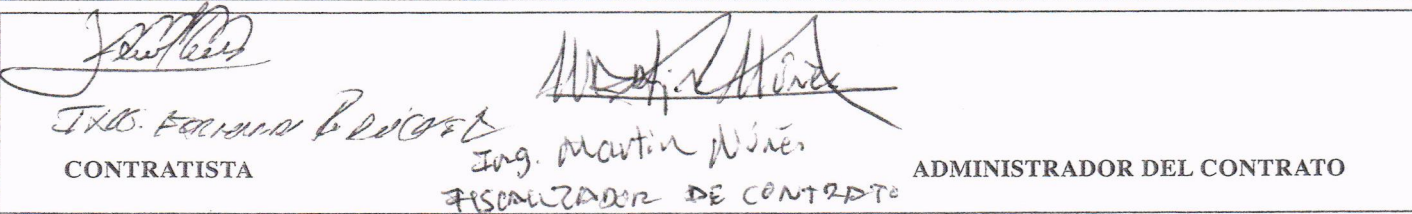 Ing.
CONTRATISTA
Ing. Martin Núñez
FISCALIZADOR DE CONTRATO
ADMINISTRADOR DEL CONTRATO